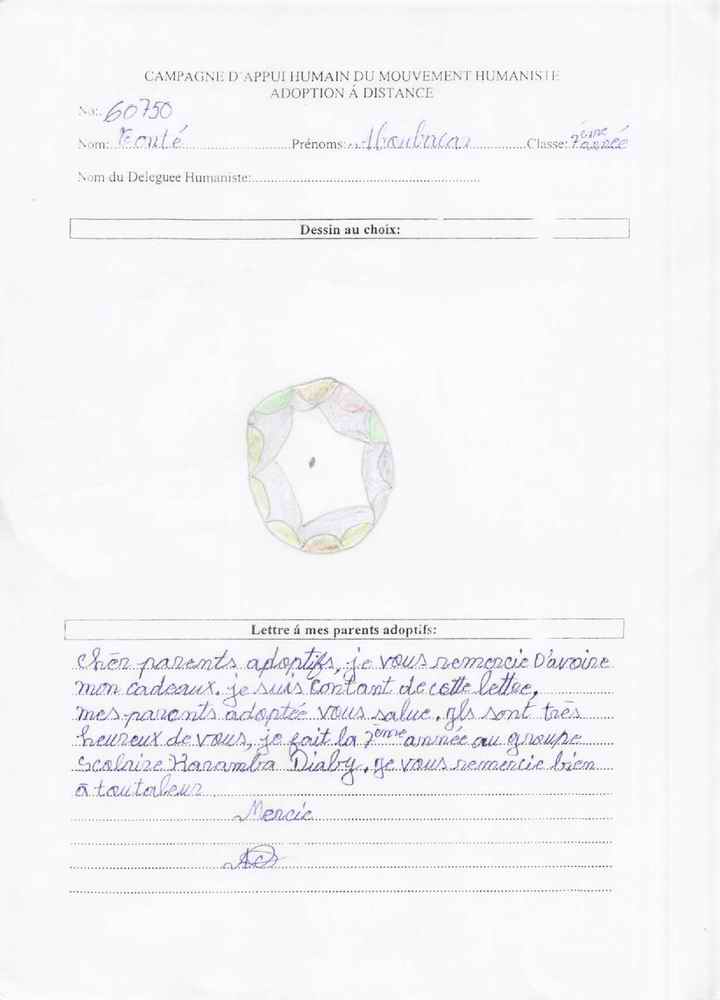 CAMPAGNE D'APPUI HUMAIN DU MOUVEMENT HUMANISTE
ADOPTION Á DISTANCE
No: 60750
Nom: Prénoms: Aboubacar Classe: 7ème année
Nom du Deleguee Humaniste:
Dessin au choix:
Lettre á mes parents adoptifs:
Chèr parents adoptifs, je vous remercie D'avoire
mon cadeaux. je suis contant de cette lettre,
mes parents adoptée vous salue. ils sont très
heureux de vous, je fait la 7ème année au groupe
Scolaire Karamba Diaby. je vous remercie bien
à toutaleur
Mercie